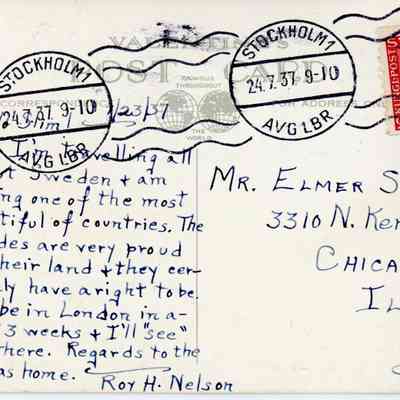 VALENTINE'S
POST CARD
FAMOUS
THROUGHOUT
THE
WORLD
CORRESPONDENCE
FOR ADDRESS ONLY
STOCKHOLM 1
24.7.37. 9-10
AVG LBR
STOCKHOLM 1
24.7.37 9-10
AVG LBR
7/23/37
I'm travelling all
Sweden & am
ing one of the most
tiful of countries. The
des are very proud
their land & they cer-
ly have a right to be.
be in London in a-
3 weeks & I'll "see"
there. Regards to the
as home.
Roy H. Nelson
MR. ELMER S
3310 N. KE
CHICA
IL